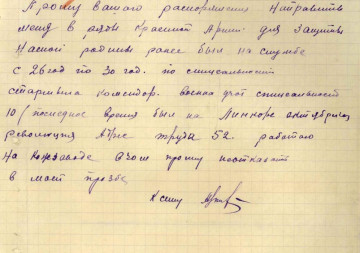 Прошу вашего распоряжения направить
меня в ряды Красной Армии для защиты
нашей родины ранее был на службе
с 26 год по 30 год. по специальности
старшина комендор. военная учет специальность
10/ последнее время был на Линкоре октябрьск
революция Адрес труда 52 работаю
на Кожзаводе в чом прошу неотказать
в моей прозбе
к сему